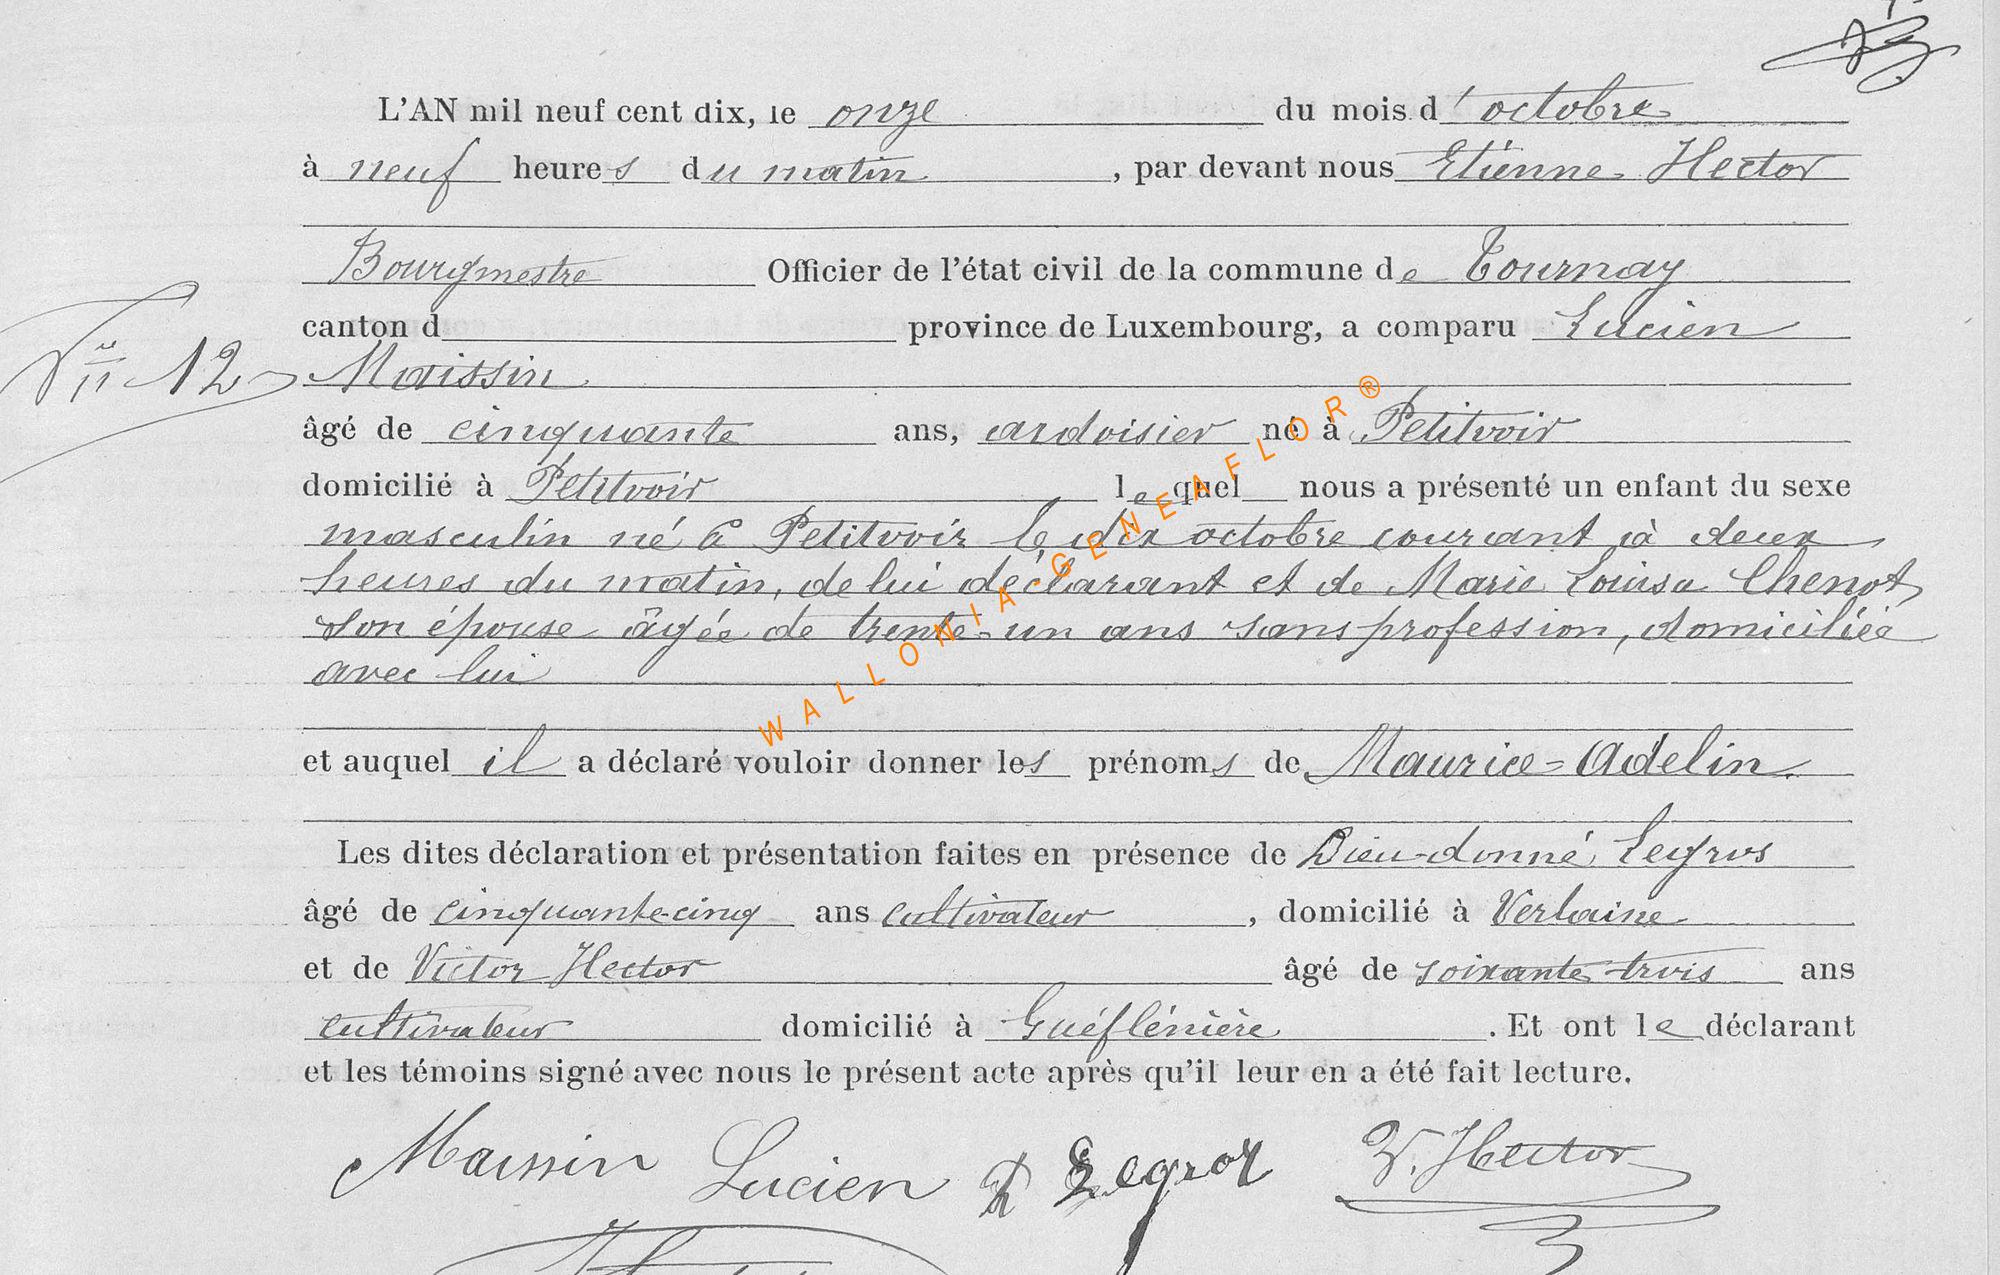 L'AN mil neuf cent dix, le onze du mois d'octobre
à neuf heures du matin, par devant nous Etienne Hector
Bourgmestre Officier de l'état civil de la commune de Tournay
canton d province de Luxembourg, a comparu Lucien
Nº 12 Maissin
âgé de cinquante ans, ardoisier né à Petitvoir
domicilié à Petitvoir lequel nous a présenté un enfant du sexe
masculin né à Petitvoir le dix octobre courant à deux
heures du matin, de lui déclarant et de Marie Louise Chenot,
son épouse âgée de trente-un ans sans profession, domiciliée
avec lui
et auquel il a déclaré vouloir donner les prénoms de Maurice-Adelin.
Les dites déclaration et présentation faites en présence de Dieu-donné Legros
âgé de cinquante-cinq ans cultivateur, domicilié à Verlaine
et de Victor Hector âgé de soixante-trois ans
cultivateur domicilié à Guéflénière. Et ont le déclarant
et les témoins signé avec nous le présent acte après qu'il leur en a été fait lecture.
Maissin Lucien D Legros V. Hector
WALLONIA GENEAFLOR®